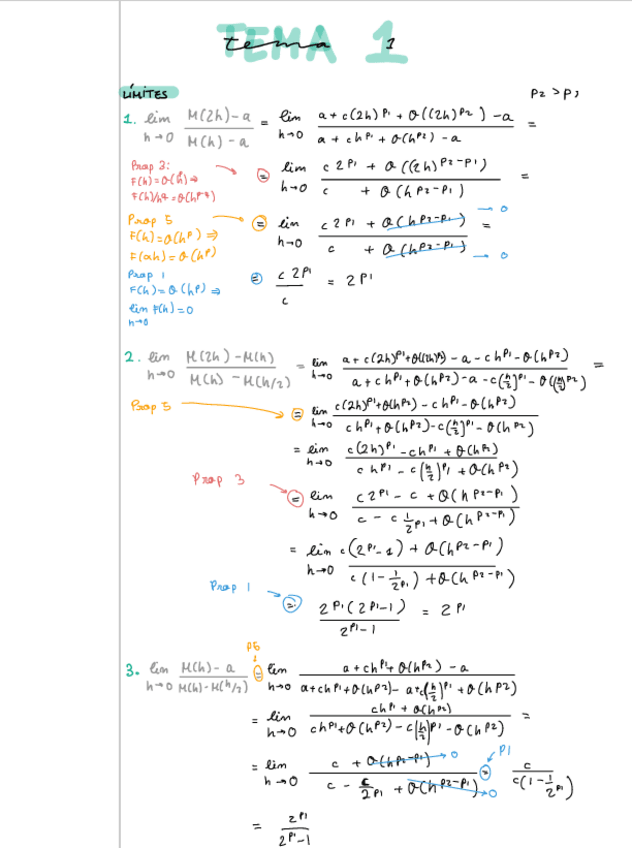 TEMA 1
tema 1
LÍMITES
p2 > p1
1. lim h→0 (M(2h)-a)/(M(h)-a) = lim h→0 (a + c(2h)^p1 + O((2h)^p2) - a)/(a + ch^p1 + O(h^p2) - a) =
Prop 3:
F(h)=O(h^p) ⇒
F(h)/h^q = O(h^p-q)
= lim h→0 (c 2^p1 + O((2h)^p2-p1))/(c + O(h^p2-p1)) =
Prop 5
F(h)=O(h^p) ⇒
F(ah)=O(h^p)
= lim h→0 (c 2^p1 + O(h^p2-p1) → 0)/(c + O(h^p2-p1) → 0) =
Prop 1
F(h)=O(h^p) ⇒
lim h→0 F(h)=0
= c 2^p1 / c = 2^p1
2. lim h→0 (M(2h)-M(h))/(M(h)-M(h/2)) = lim h→0 (a + c(2h)^p1 + O((2h)^p2) - a - ch^p1 - O(h^p2))/(a + ch^p1 + O(h^p2) - a - c(h/2)^p1 - O((h/2)^p2)) =
Prop 5
= lim h→0 (c(2h)^p1 + O(h^p2) - ch^p1 - O(h^p2))/(ch^p1 + O(h^p2) - c(h/2)^p1 - O(h^p2))
= lim h→0 (c(2h)^p1 - ch^p1 + O(h^p2))/(ch^p1 - c(h/2)^p1 + O(h^p2))
Prop 3
= lim h→0 (c 2^p1 - c + O(h^p2-p1))/(c - c 1/2^p1 + O(h^p2-p1))
= lim h→0 (c(2^p1 - 1) + O(h^p2-p1))/(c(1 - 1/2^p1) + O(h^p2-p1))
Prop 1
= 2^p1(2^p1-1)/(2^p1-1) = 2^p1
P5
3. lim h→0 (M(h)-a)/(M(h)-M(h/2)) = lim h→0 (a + ch^p1 + O(h^p2) - a)/(a + ch^p1 + O(h^p2) - a + c(h/2)^p1 + O(h^p2))
= lim h→0 (ch^p1 + O(h^p2))/(ch^p1 + O(h^p2) - c(h/2)^p1 - O(h^p2)) =
P1
= lim h→0 (c + O(h^p2-p1) → 0)/(c - c/2^p1 + O(h^p2-p1) → 0) = c/(c(1 - 1/2^p1))
= 2^p1/(2^p1-1)